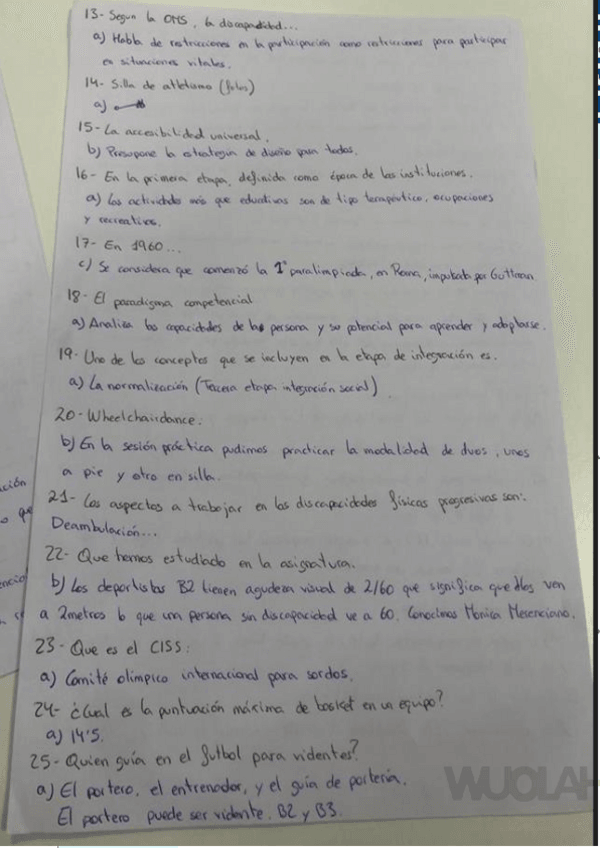 13- Segun la OMS, la discapacidad...
a) Habla de restricciones en la participación como restricciones para participar
en situaciones vitales.
14- Silla de atletismo (fotos)
a)
15- La accesibilidad universal.
b) Presupone la estrategia de diseño para todos.
16- En la primera etapa, definida como época de las instituciones.
a) Las actividades más que eduativas son de tipo terapéutico, ocupaciones
y recreativas.
17- En 1960...
c) Se considera que comenzó la 1ª paralimpiada, en Roma, impulsada por Guttman
18- El paradigma competencial
a) Analiza las capacidades de la persona y su potencial para aprender y adaptarse.
19- Uno de los conceptos que se incluyen en la etapa de integración es.
a) La normalización (Tercera etapa integración social)
20- Wheelchairdance:
b) En la sesión práctica pudimos practicar la modalidad de duos, unos
a pie y otro en silla.
21- Los aspectos a trabajar en las discapacidades físicas progresivas son:
Deambulación...
22- Que hemos estudiado en la asignatura.
b) Los deportistas B2 tienen agudeza visual de 2/60 que significa que ellos ven
a 2metros lo que una persona sin discapacidad ve a 60. Conocimos Monica Mesenciano.
23- Que es el CISS:
a) Comité olímpico internacional para sordos.
24- ¿Cual es la puntuación máxima de basket en un equipo?
a) 14'5.
25- Quien guía en el futbol para videntes?
a) El portero, el entrenador, y el guía de portería.
El portero puede ser vidente, B2 y B3.
ción
o que
encio
WUOLAH